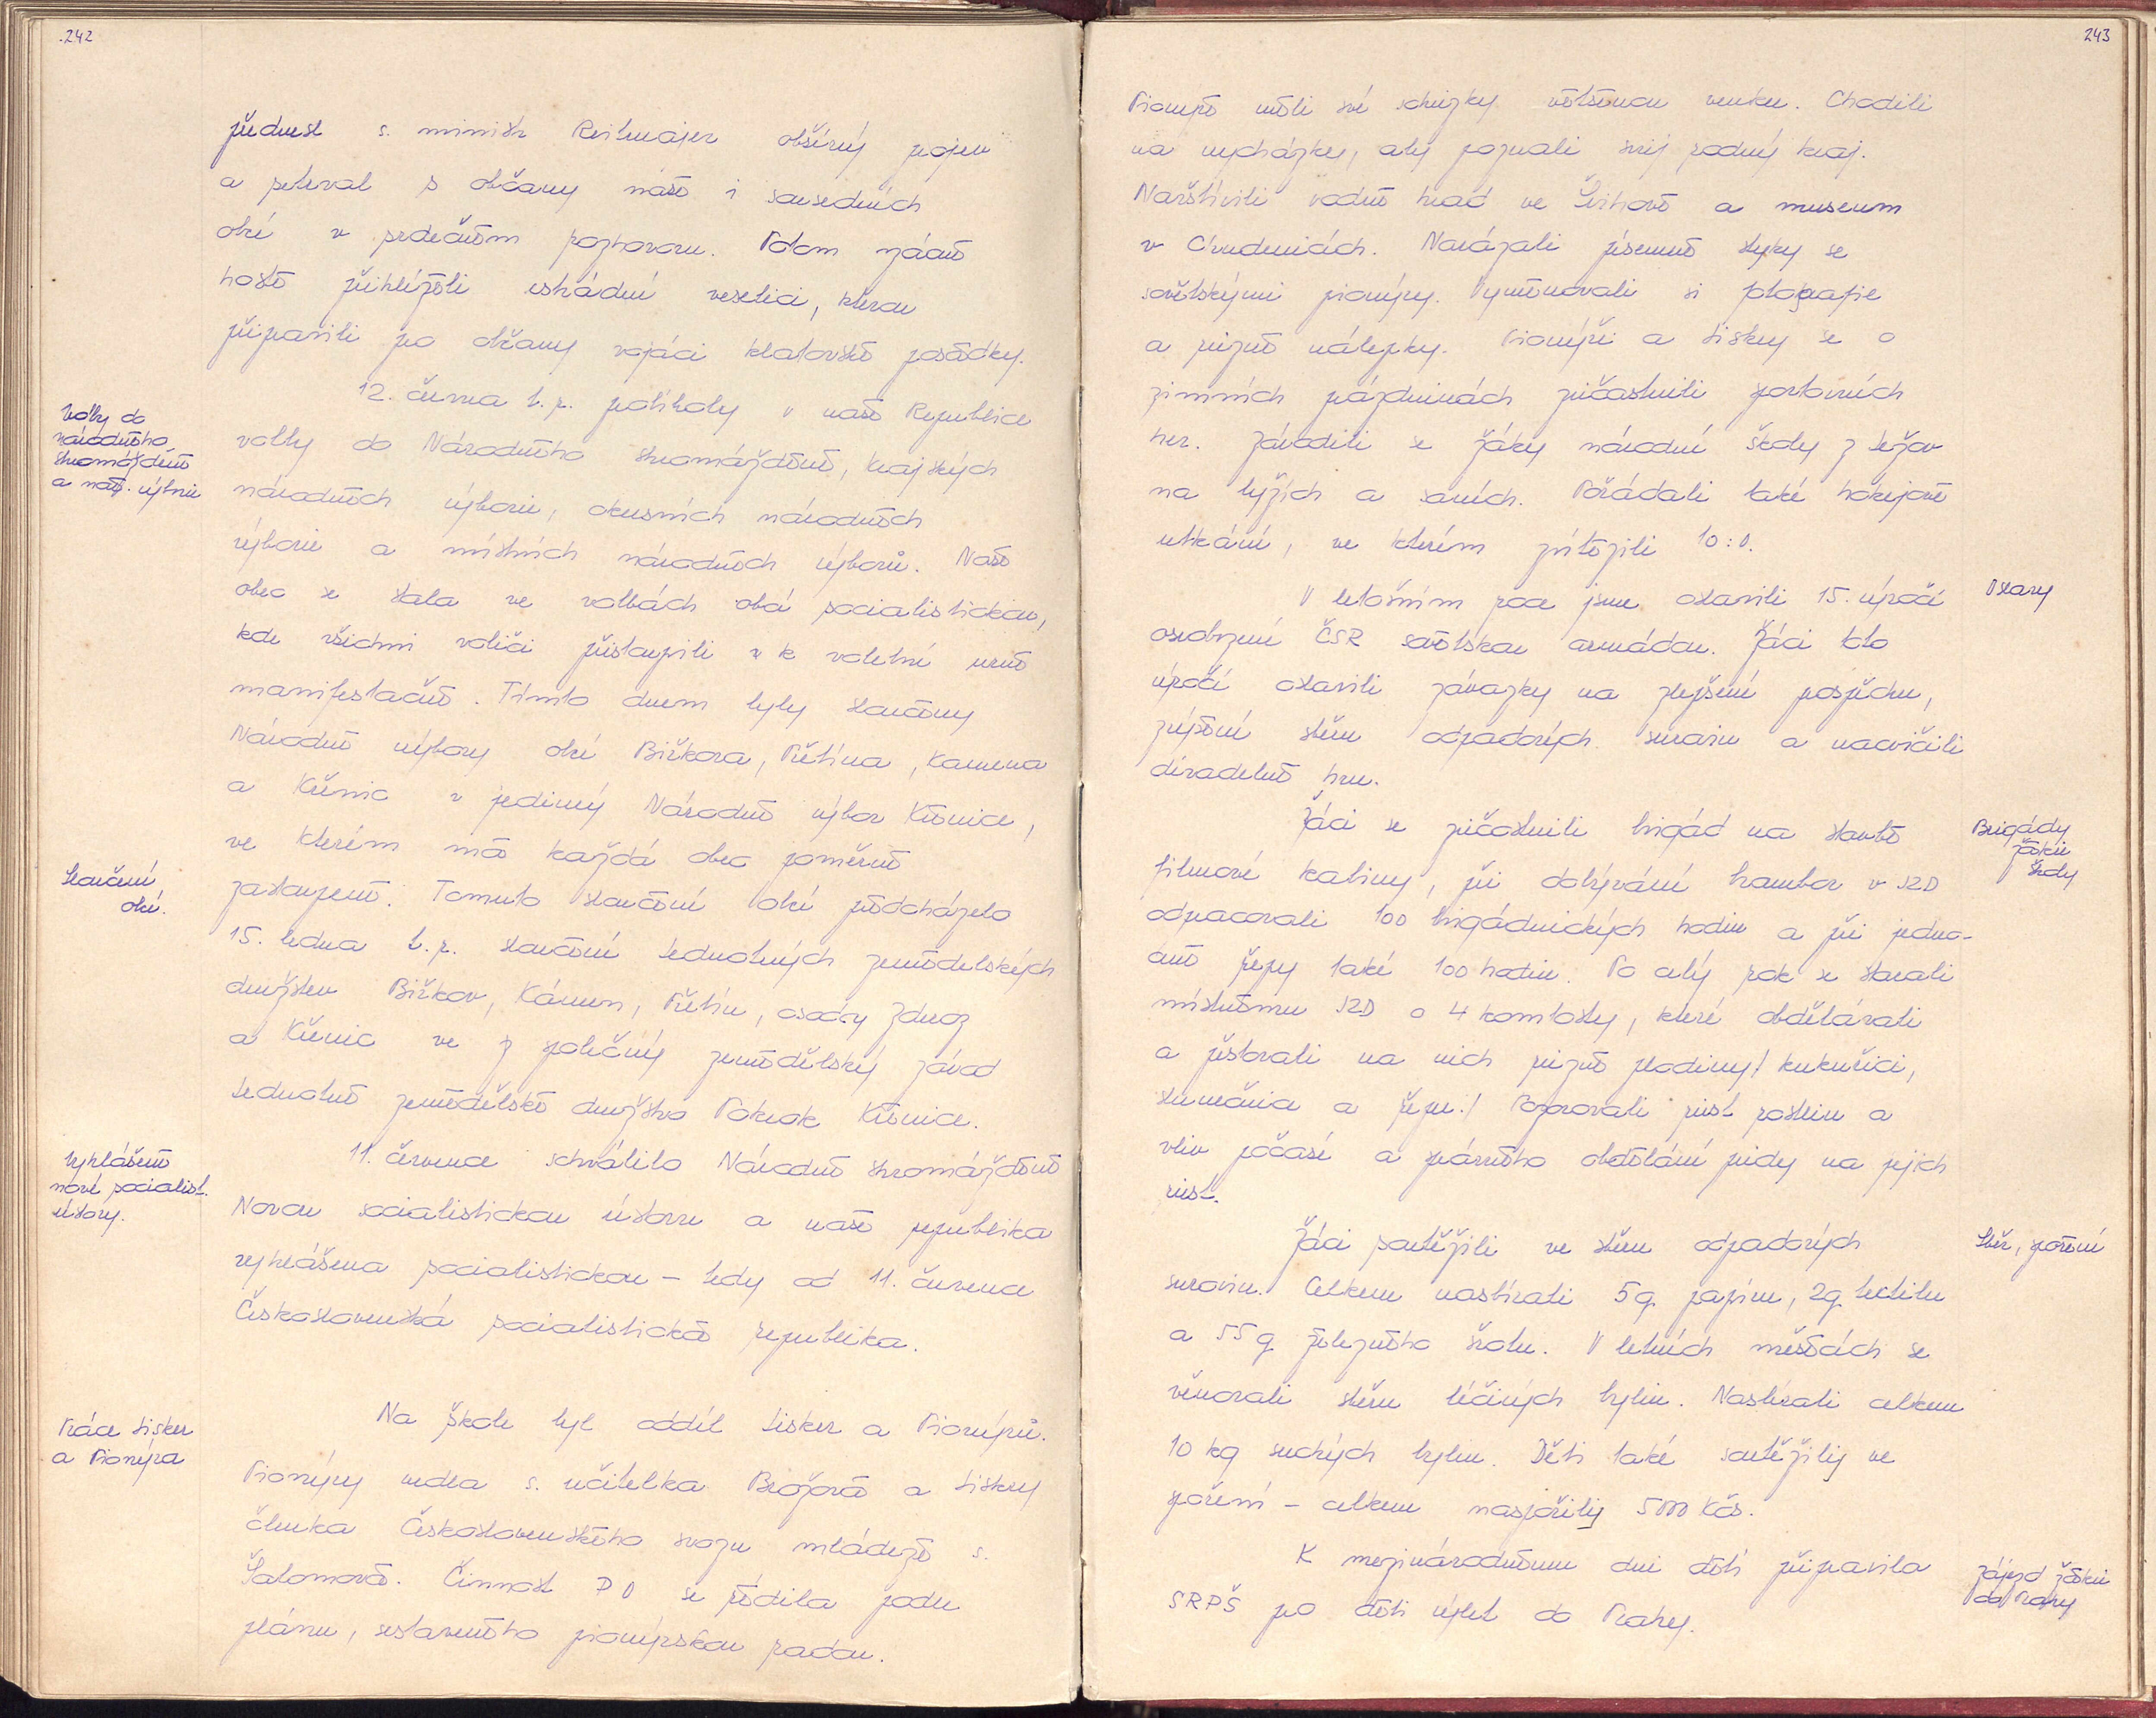 242
přednesl s. ministr Reitmajer obšírný projev
a setrval s občany naší i sousedních
obcí v srdečném rozhovoru. Potom vzácní
hosté přihlíželi estrádní veselici, kterou
připravili pro občany vojáci klatovské posádky.
12. června t. r. probíhaly v naší Republice
Volby do
národního
shromáždění
a nár. výborů
volby do Národního shromáždění, krajských
národních výborů, okresních národních
výborů a místních národních výborů. Naše
obec se stala ve volbách obcí socialistickou,
kde všichni voliči přistoupili k volební urně
manifestačně. Tímto dnem byly sloučeny
Národní výbory obcí Biřkova, Přetína, Kamena
a Křenic v jediný Národní výbor Křenice,
ve kterém má každá obec poměrné
Sloučení
obcí.
zastoupení. Tomuto sloučení obcí předcházelo
15. ledna t. r. sloučení Jednotných zemědělských
družstev Biřkov, Kámen, Přetín, osady Zdroz
a Křenic ve společný zemědělský závod
Jednotné zemědělské družstvo Pokrok Křenice.
Vyhlášení
nové socialist.
ústavy.
11. července schválilo Národní shromáždění
Novou socialistickou ústavu a naše republika
vyhlášena socialistickou – tedy od 11. července
Československá socialistická republika.
Práce Jisker
a Pionýra
Na škole byl oddíl Jisker a Pionýrů.
Pionýry vedla s. učitelka Brožová a Jiskry
členka Československého svazu mládeže s.
Šalomová. Činnost PO se řídila podle
plánu, sestaveného pionýrskou radou.
243
Pionýři měli své schůzky většinou venku. Chodili
na vycházky, aby poznali svůj rodný kraj.
Navštívili vodní hrad ve Švihově a museum
v Chudenicích. Navázali písemné styky se
sovětskými pionýry. Vyměňovali si fotografie
a různé nálepky. Pionýři a Jiskry se o
zimních prázdninách zúčastnili sportovních
her. Závodili se žáky národní školy z Ježov
na lyžích a saních. Pořádali také hokejové
utkání, ve kterém zvítězili 10:0.
V letošním roce jsme oslavili 15. výročí
Oslavy
osvobození ČSR sovětskou armádou. Žáci toto
výročí oslavili závazky na zlepšení prospěchu,
zvýšení sběru odpadových surovin a nacvičili
divadelní hru.
Žáci se zúčastnili brigád na stavbě
Brigády
žáků
školy
filmové kabiny, při dobývání brambor v JZD
odpracovali 100 brigádnických hodin a při jedno-
cení řepy také 100 hodin. Po celý rok se starali
místnímu JZD o 4 komposty, které obdělávali
a pěstovali na nich různé plodiny / kukuřici,
slunečnice a řepu./ Pozorovali růst rostlin a
vliv počasí a správného obdělání půdy na jejich
růst.
Žáci soutěžili ve sběru odpadových
Sběr, spoření
surovin. Celkem nasbírali 5 q papíru, 2 q textilu
a 55 q železného šrotu. V letních měsících se
věnovali sběru léčivých bylin. Nasbírali celkem
10 kg suchých bylin. Děti také soutěžily ve
spoření – celkem naspořily 5000 Kčs.
K mezinárodnímu dni dětí připravila
Zájezd žáků
do Prahy
SRPŠ pro děti výlet do Prahy.